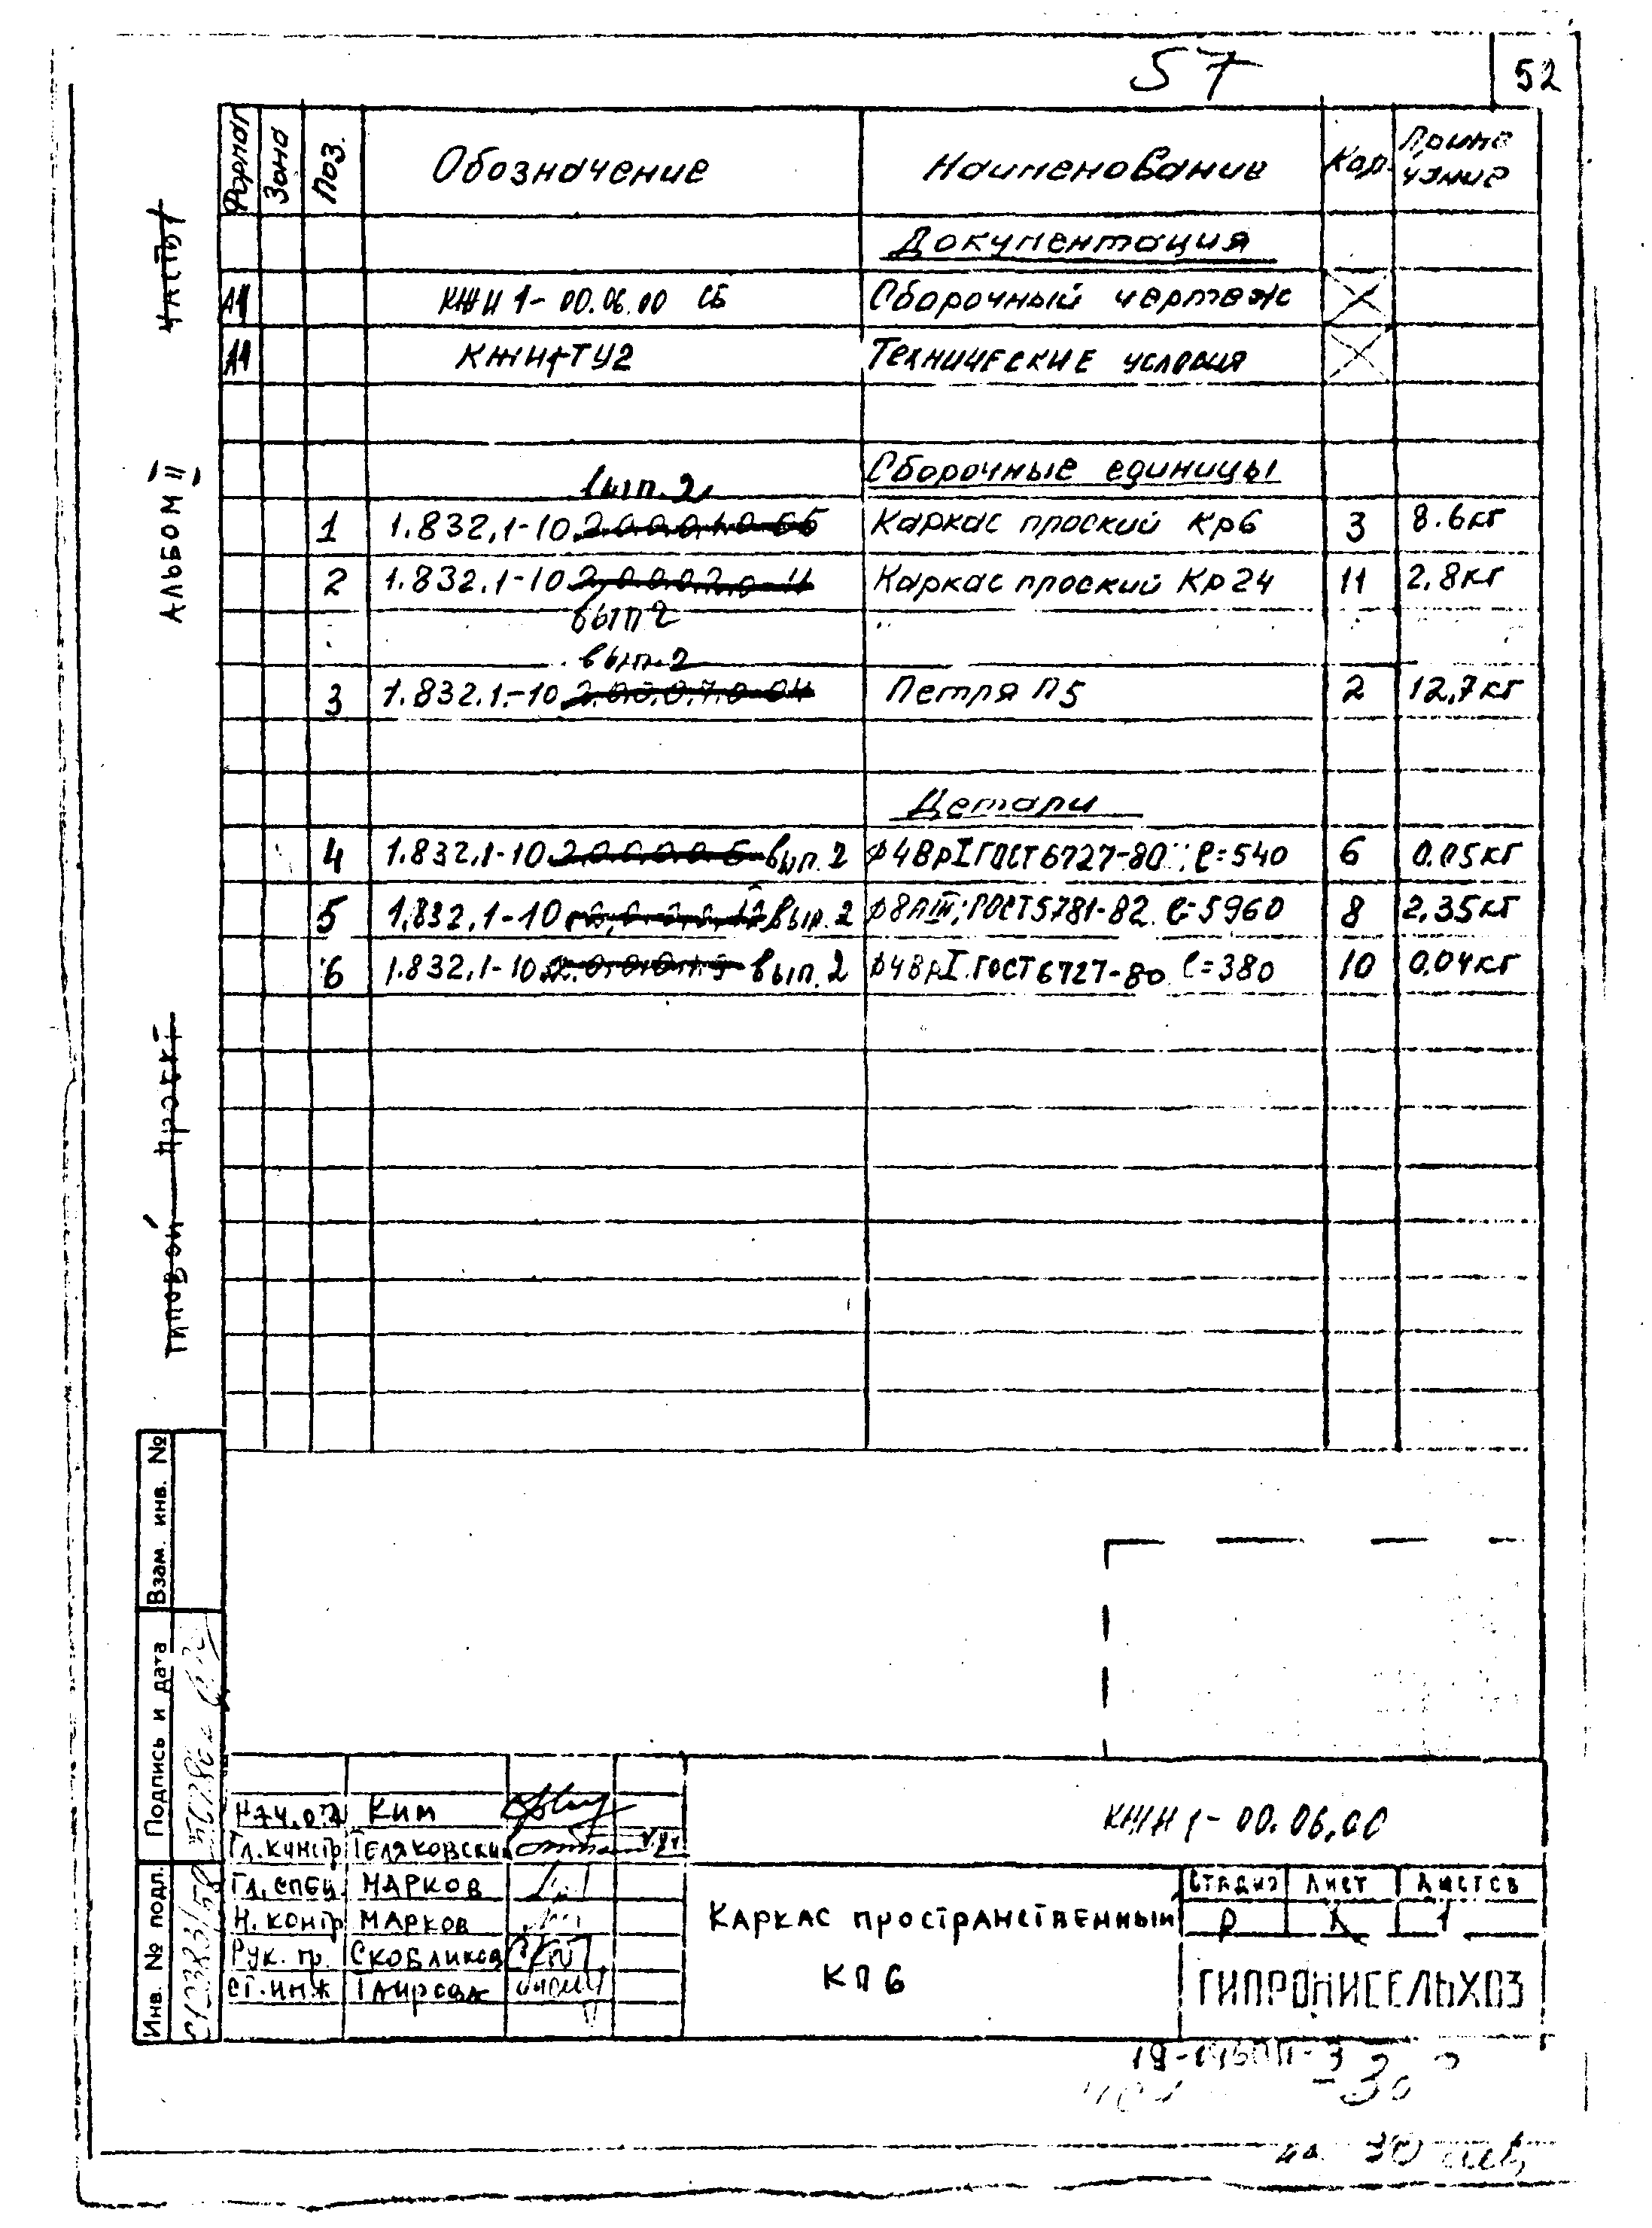 57
52
Формат Зона Поз. Обозначение Наименование Кол. Примечание
Документация
А4 КЖИ 1-00.06.00 СБ Сборочный чертеж
А4 КЖИ1ТУ2 Технические условия
Сборочные единицы
вып. 2
1 1.832.1-10 Каркас плоский Кр6 3 8.6кг
2 1.832.1-10 Каркас плоский Кр24 11 2,8кг
вып 2
вып. 2
3 1.832.1-10 Петля П5 2 12,7кг
Детали
4 1.832.1-10 вып. 2 ф4ВрI ГОСТ 6727-80; ℓ=540 6 0.05кг
5 1.832.1-10 вып. 2 ф8АIII; ГОСТ 5781-82 ℓ=5960 8 2,35кг
6 1.832.1-10 вып. 2 ф4ВрI. ГОСТ 6727-80 ℓ=380 10 0,04кг
Часть 1
Альбом II
Типовой проект
Взам. инв. №
Подпись и дата
Инв. № подл.
Нач. отд Ким
Гл. констр Теляковский
Гл. спец. Марков
Н. контр Марков
Рук. гр. Скобликов
Ст. инж
КЖИ 1-00.06.00
Каркас пространственный
КП 6
Стадия Лист Листов
Р 1 1
ГИПРОНИСЕЛЬХОЗ